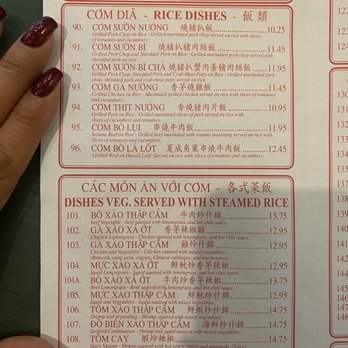 CƠM DĨA - RICE DISHES - 飯類
90. CƠM SƯỜN NƯỚNG 燒豬扒飯 10.25
Grilled Pork Chop on Rice - Grilled marinated pork chop served on rice with slices
of tomatoes and cucumbers.
91. CƠM SƯỜN BÌ 燒豬扒豬肉絲飯 11.45
Grilled Pork Chop and Shredded Pork on Rice
92. CƠM SƯỜN BÌ CHẢ 燒豬扒蟹肉蛋豬肉絲飯 12.45
Grilled Pork Chop, Shredded Pork and Crab Meat Patty on Rice - Grilled marinated pork
chop, shredded pork and crab meat patty served on rice.
93. CƠM GÀ NƯỚNG 香茅燒雞飯 11.45
Grilled Chicken on Rice - Marinated grilled chicken served on rice with slices of tomatoes
and cucumbers.
94. CƠM THỊT NƯỚNG 香燒豬肉片飯 10.95
Grilled Pork on Rice - Grilled marinated slices of pork served on rice with
slices of tomatoes and cucumbers.
95. CƠM BÒ LỤI 串燒牛肉飯 11.45
Sesame Beef on Rice - Grilled beef marinated with sesame seasoning served on rice with
slices of tomatoes and cucumbers.
96. CƠM BÒ LÁ LỐT 夏威夷葉串燒牛肉飯 12.45
Grilled Beef on Hawaii Leaf Served on Rice with slices of tomatoes and cucumbers.
CÁC MÓN ĂN VỚI CƠM - 各式菜飯
DISHES VEG. SERVED WITH STEAMED RICE
101. BÒ XÀO THẬP CẨM 牛肉炒什錦 13.75
102. GÀ XÀO XẢ ỚT 香茅辣椒雞 12.75
103. GÀ XÀO THẬP CẨM 雞炒什錦 12.75
Chicken and Vegetables - Chicken sauteed with mixed vegetables.
104. MỰC XÀO XẢ ỚT 鮮魷炒香茅辣椒 14.75
104A. BÒ XÀO XẢ ỚT 牛肉炒香茅辣椒 13.75
105. MỰC XÀO THẬP CẨM 鮮魷炒什錦 14.75
Squid and Vegetables - Squid sauteed with mixed vegetables.
106. TÔM XÀO THẬP CẨM 鮮蝦炒什錦 14.75
Shrimp and Vegetables - Shrimp sauteed with mixed vegetables.
107. ĐỒ BIỂN XÀO THẬP CẨM 海鮮炒什錦 14.75
108. TÔM CAY 蝦炒辣椒 14.75